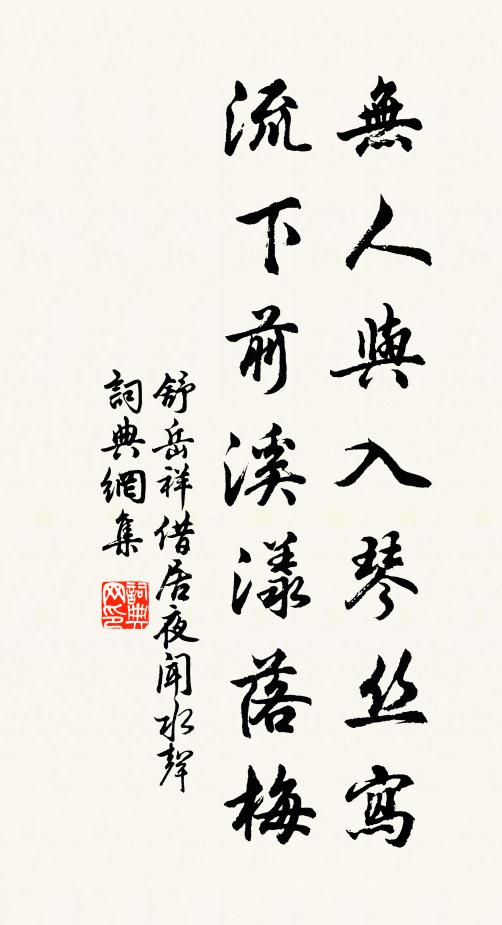 無人與入琴丝寫
流下前溪漾落梅
舒岳祥借居夜闻水聲
詞典網集
詞典网印